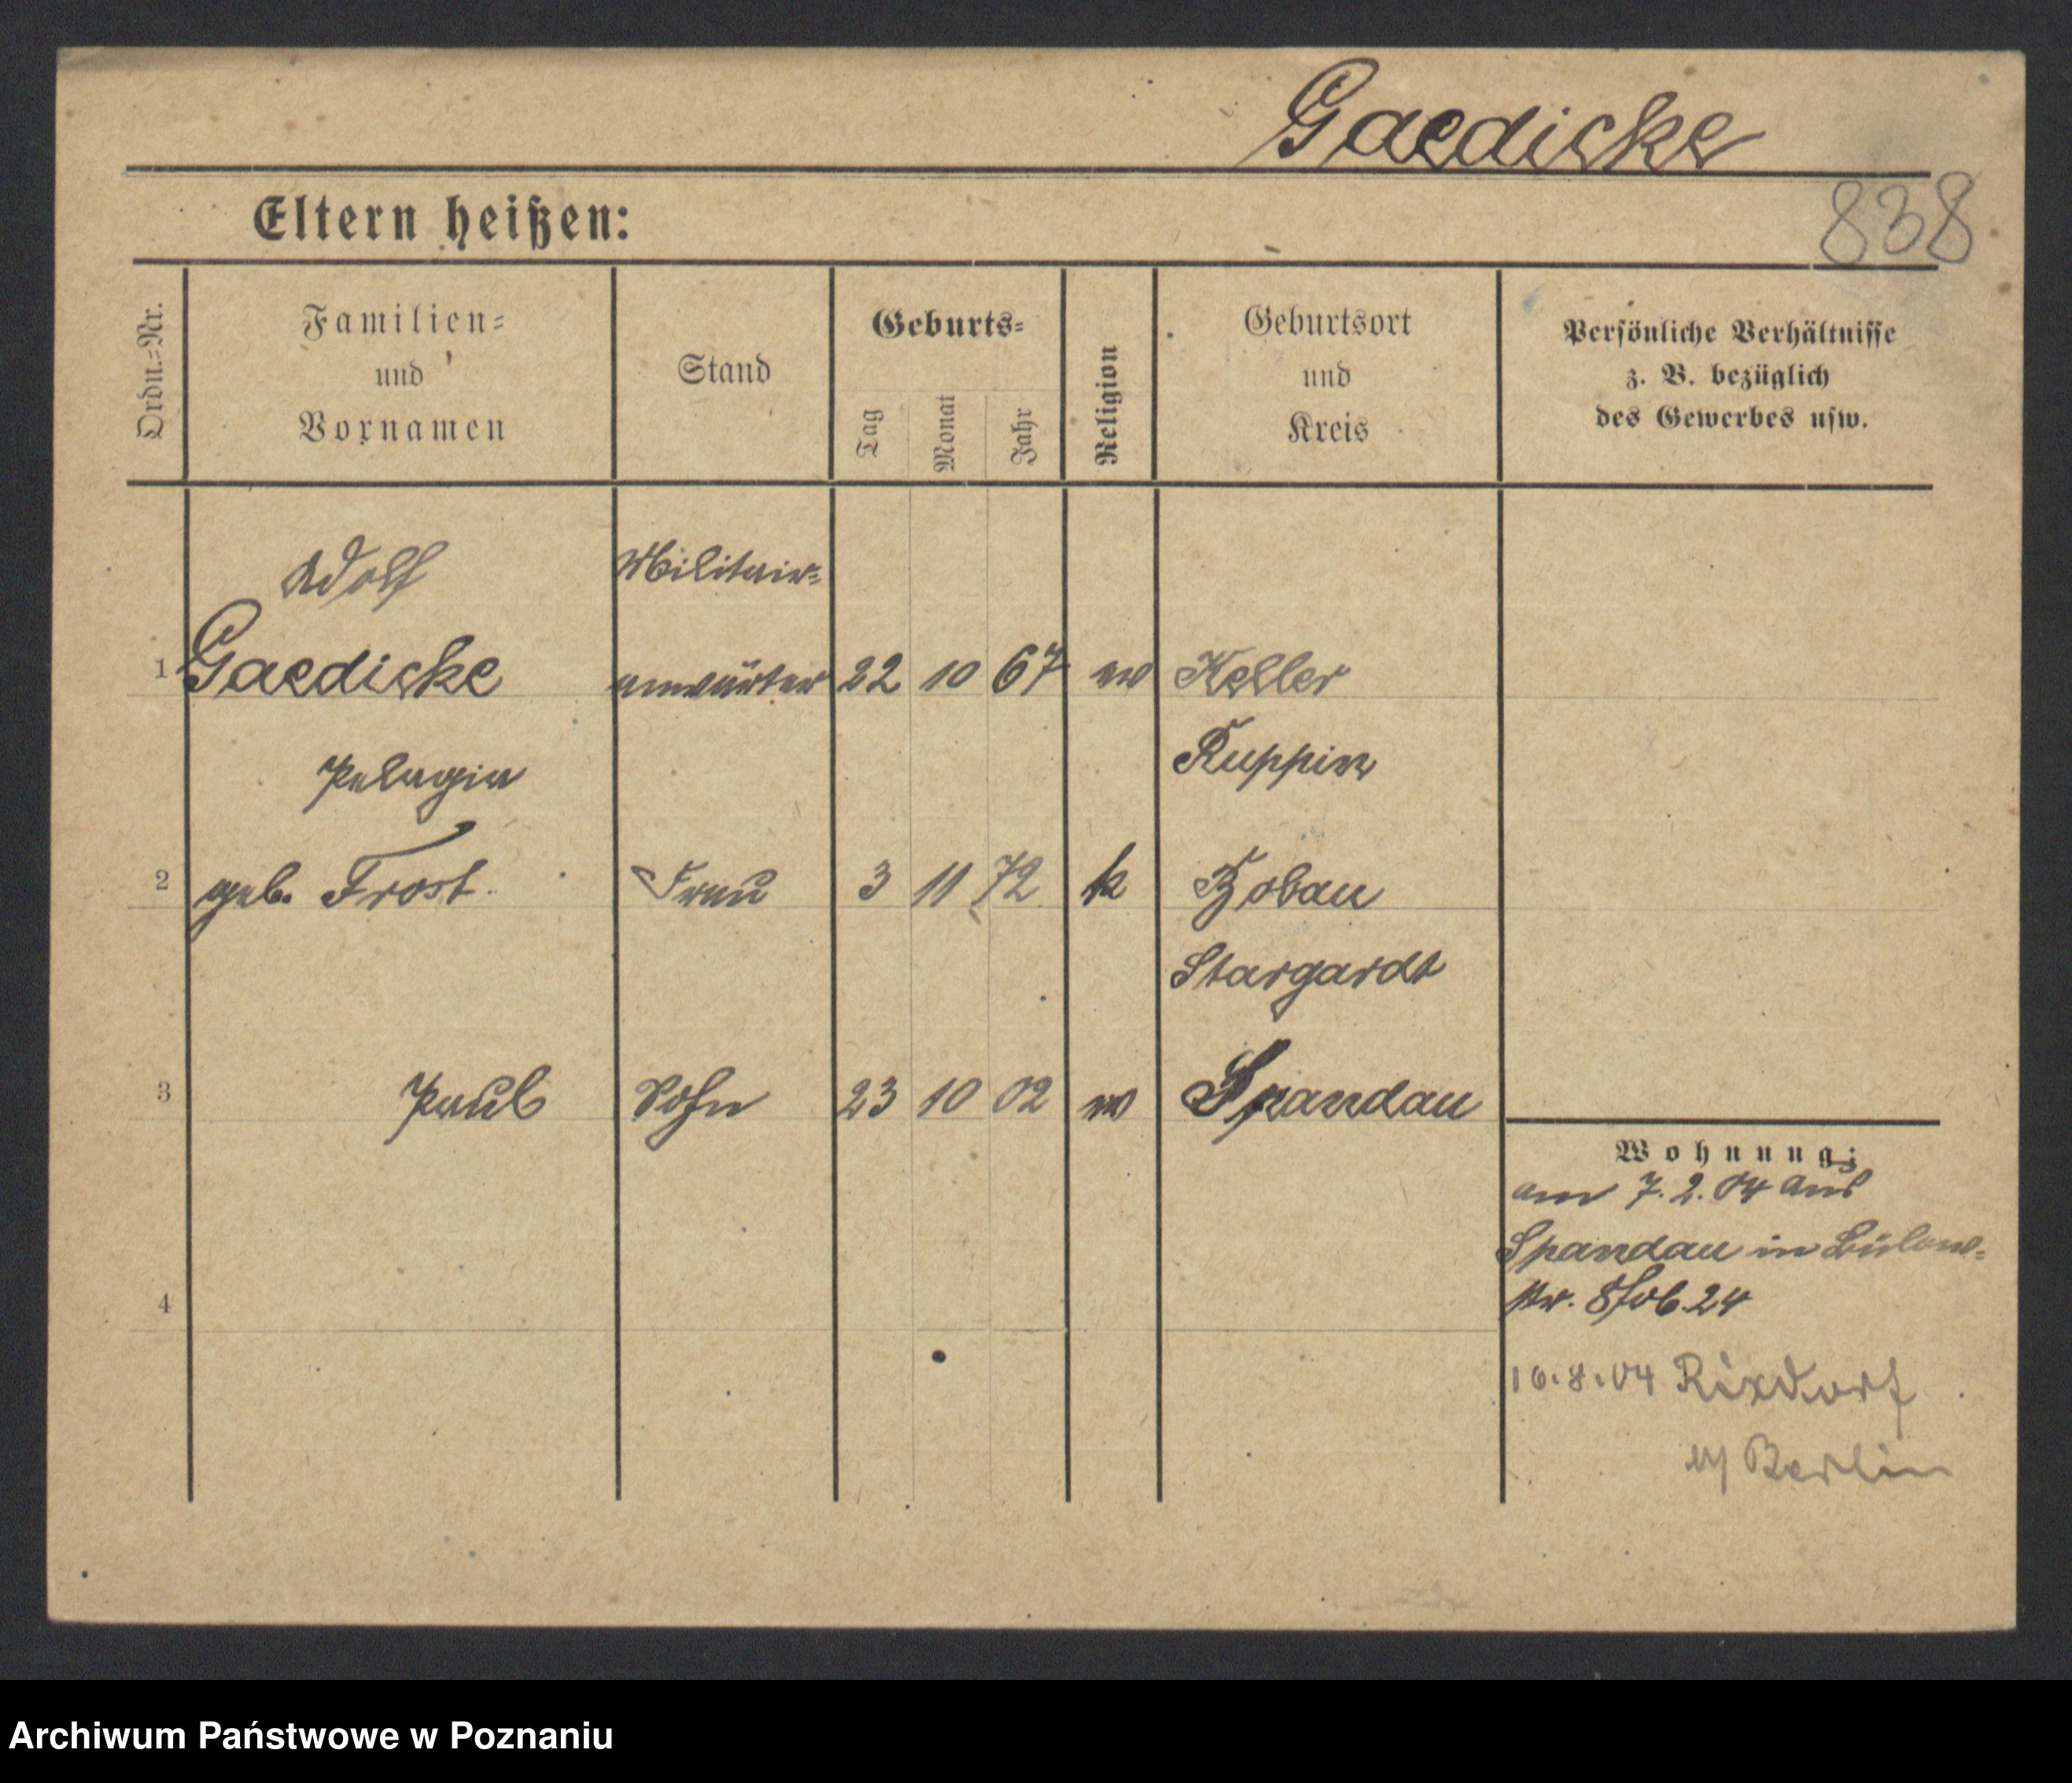 Gaedicke
838
Eltern heißen:
Ordn.=Nr.
Familien=
und
Vornamen
Stand
Geburts=
Tag
Monat
Jahr
Religion
Geburtsort
und
Kreis
Persönliche Verhältnisse
z. B. bezüglich
des Gewerbes usw.
Adolf Militair=
1 Gaedicke anwärter 22 10 67 ev Keller
Pelagia Ruppin
2 geb. Frost Frau 3 11 72 k Bobau
Stargardt
3 Paul Sohn 23 10 02 ev Spandau
Wohnung:
am 7.2.04 aus
Spandau in Bülow=
4 str. 24
16.8.04 Rixdorf
Berlin
Archiwum Państwowe w Poznaniu